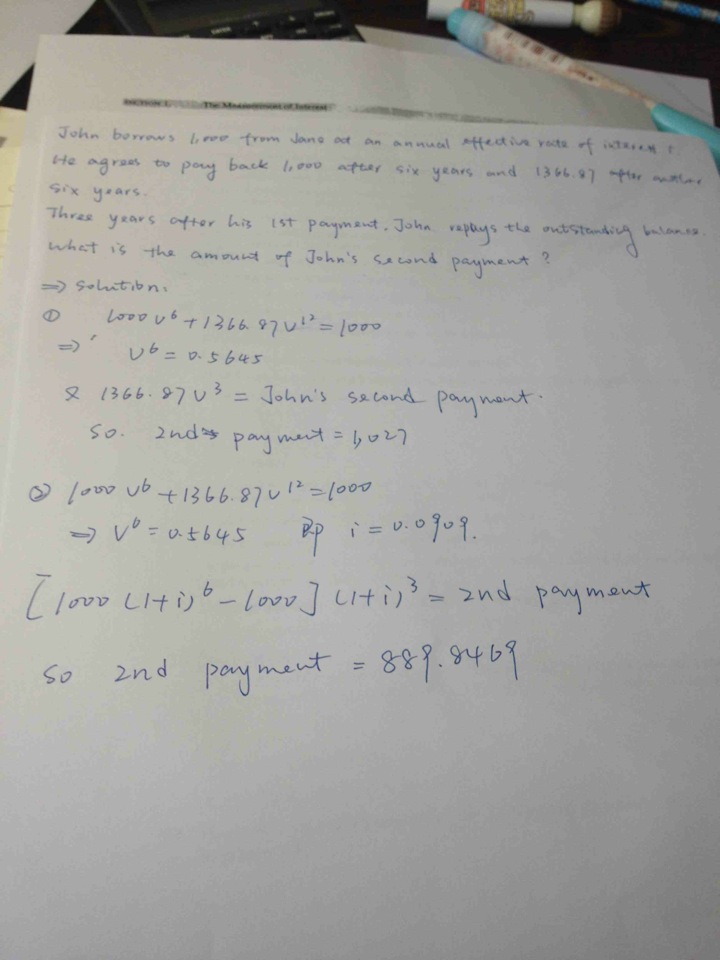 SECTION 1. The Measurement of Interest
John borrows 1,000 from Jane at an annual effective rate of interest i.
He agrees to pay back 1,000 after six years and 1366.87 after another
six years.
Three years after his 1st payment, John repays the outstanding balance.
What is the amount of John's second payment?
⇒ Solution:
① 1000 v⁶ + 1366.87 v¹² = 1000
⇒ v⁶ = 0.5645
& 1366.87 v³ = John's second payment.
so. 2nd payment = 1,027
② 1000 v⁶ + 1366.87 v¹² = 1000
⇒ v⁶ = 0.5645 即 i = 0.0909.
[1000 (1+i)⁶ - 1000] (1+i)³ = 2nd payment
so 2nd payment = 889.8469